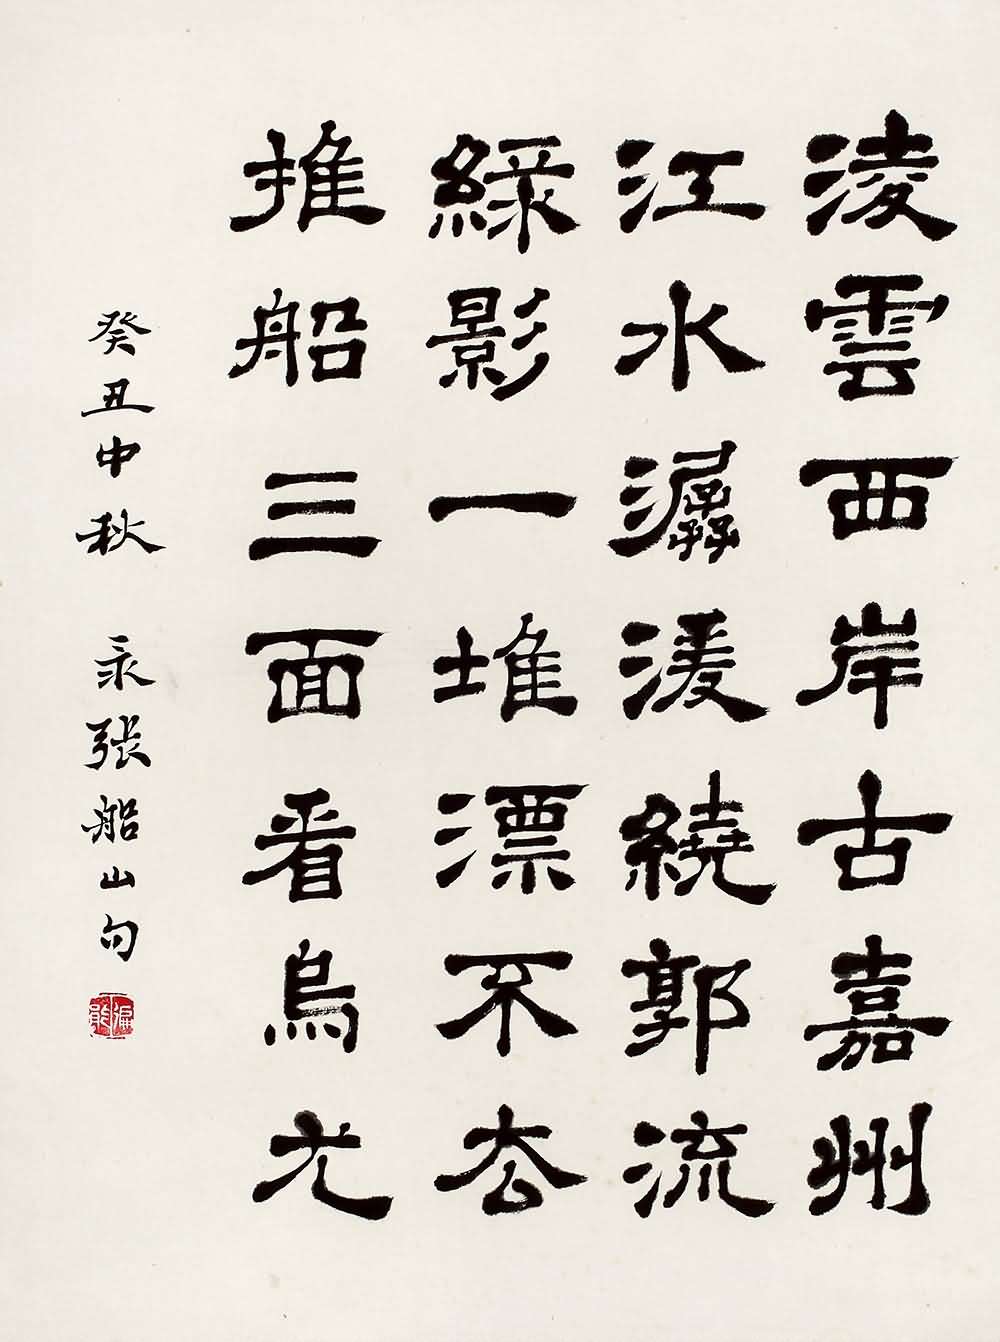 淩雲西岸古嘉州
江水潺湲繞郭流
綠影一堆漂不去
推船三面看烏尤
癸丑中秋 录張船山句
遍能